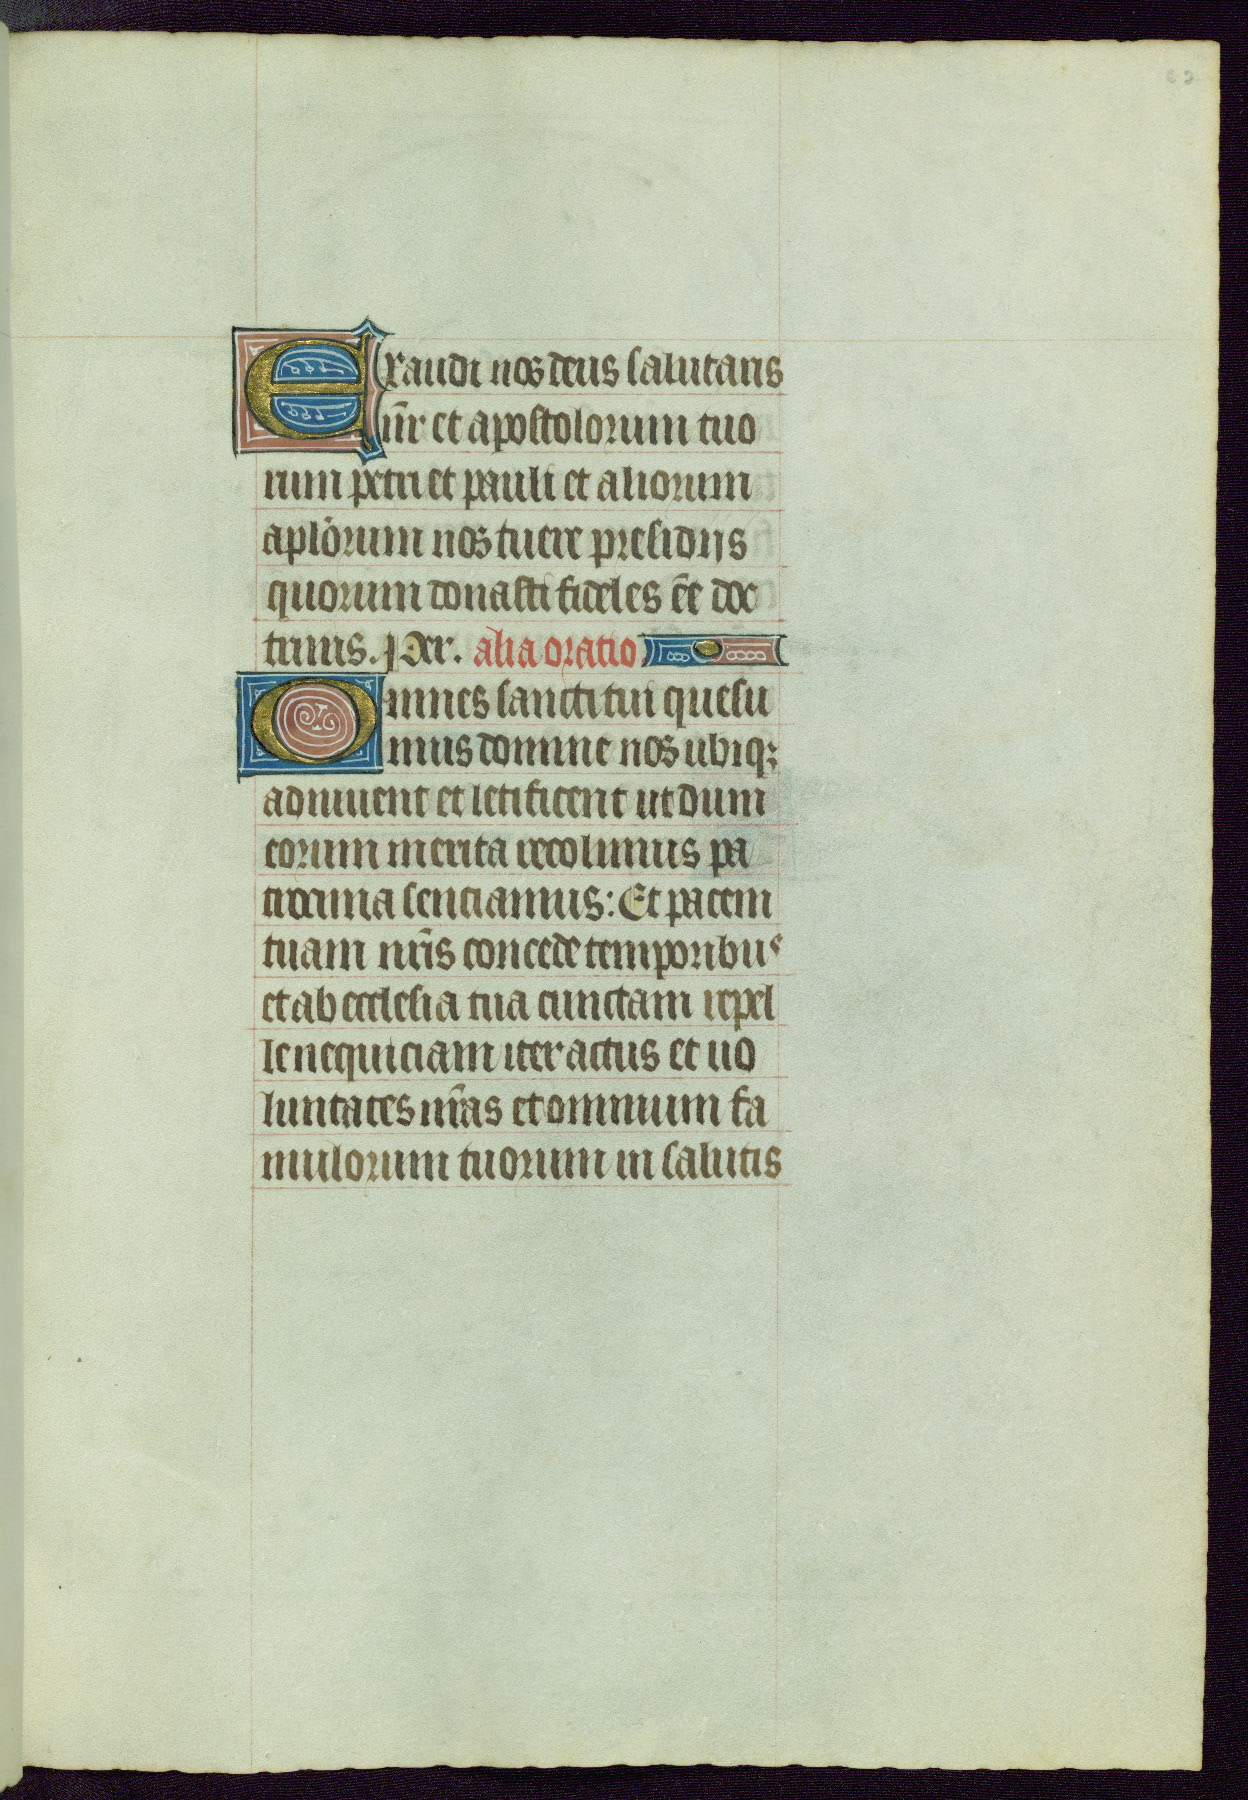 Exaudi nos deus salutaris
nr̄ et apostolorum tuo
rum petri et pauli et aliorum
aplōrum nos tuere presidijs
quorum donasti fideles ēe doc
trinis. Per. alia oratio
Omnes sancti tui quesu
mus domine nos ubiqꝫ
adiuuent et letificent ut dum
eorum merita recolimus pa
trocinia senciamus: Et pacem
tuam nr̄is concede temporibus
et ab ecclesia tua cunctam repel
le nequiciam iter actus et uo
luntates nr̄as et omnium fa
mulorum tuorum in salutis